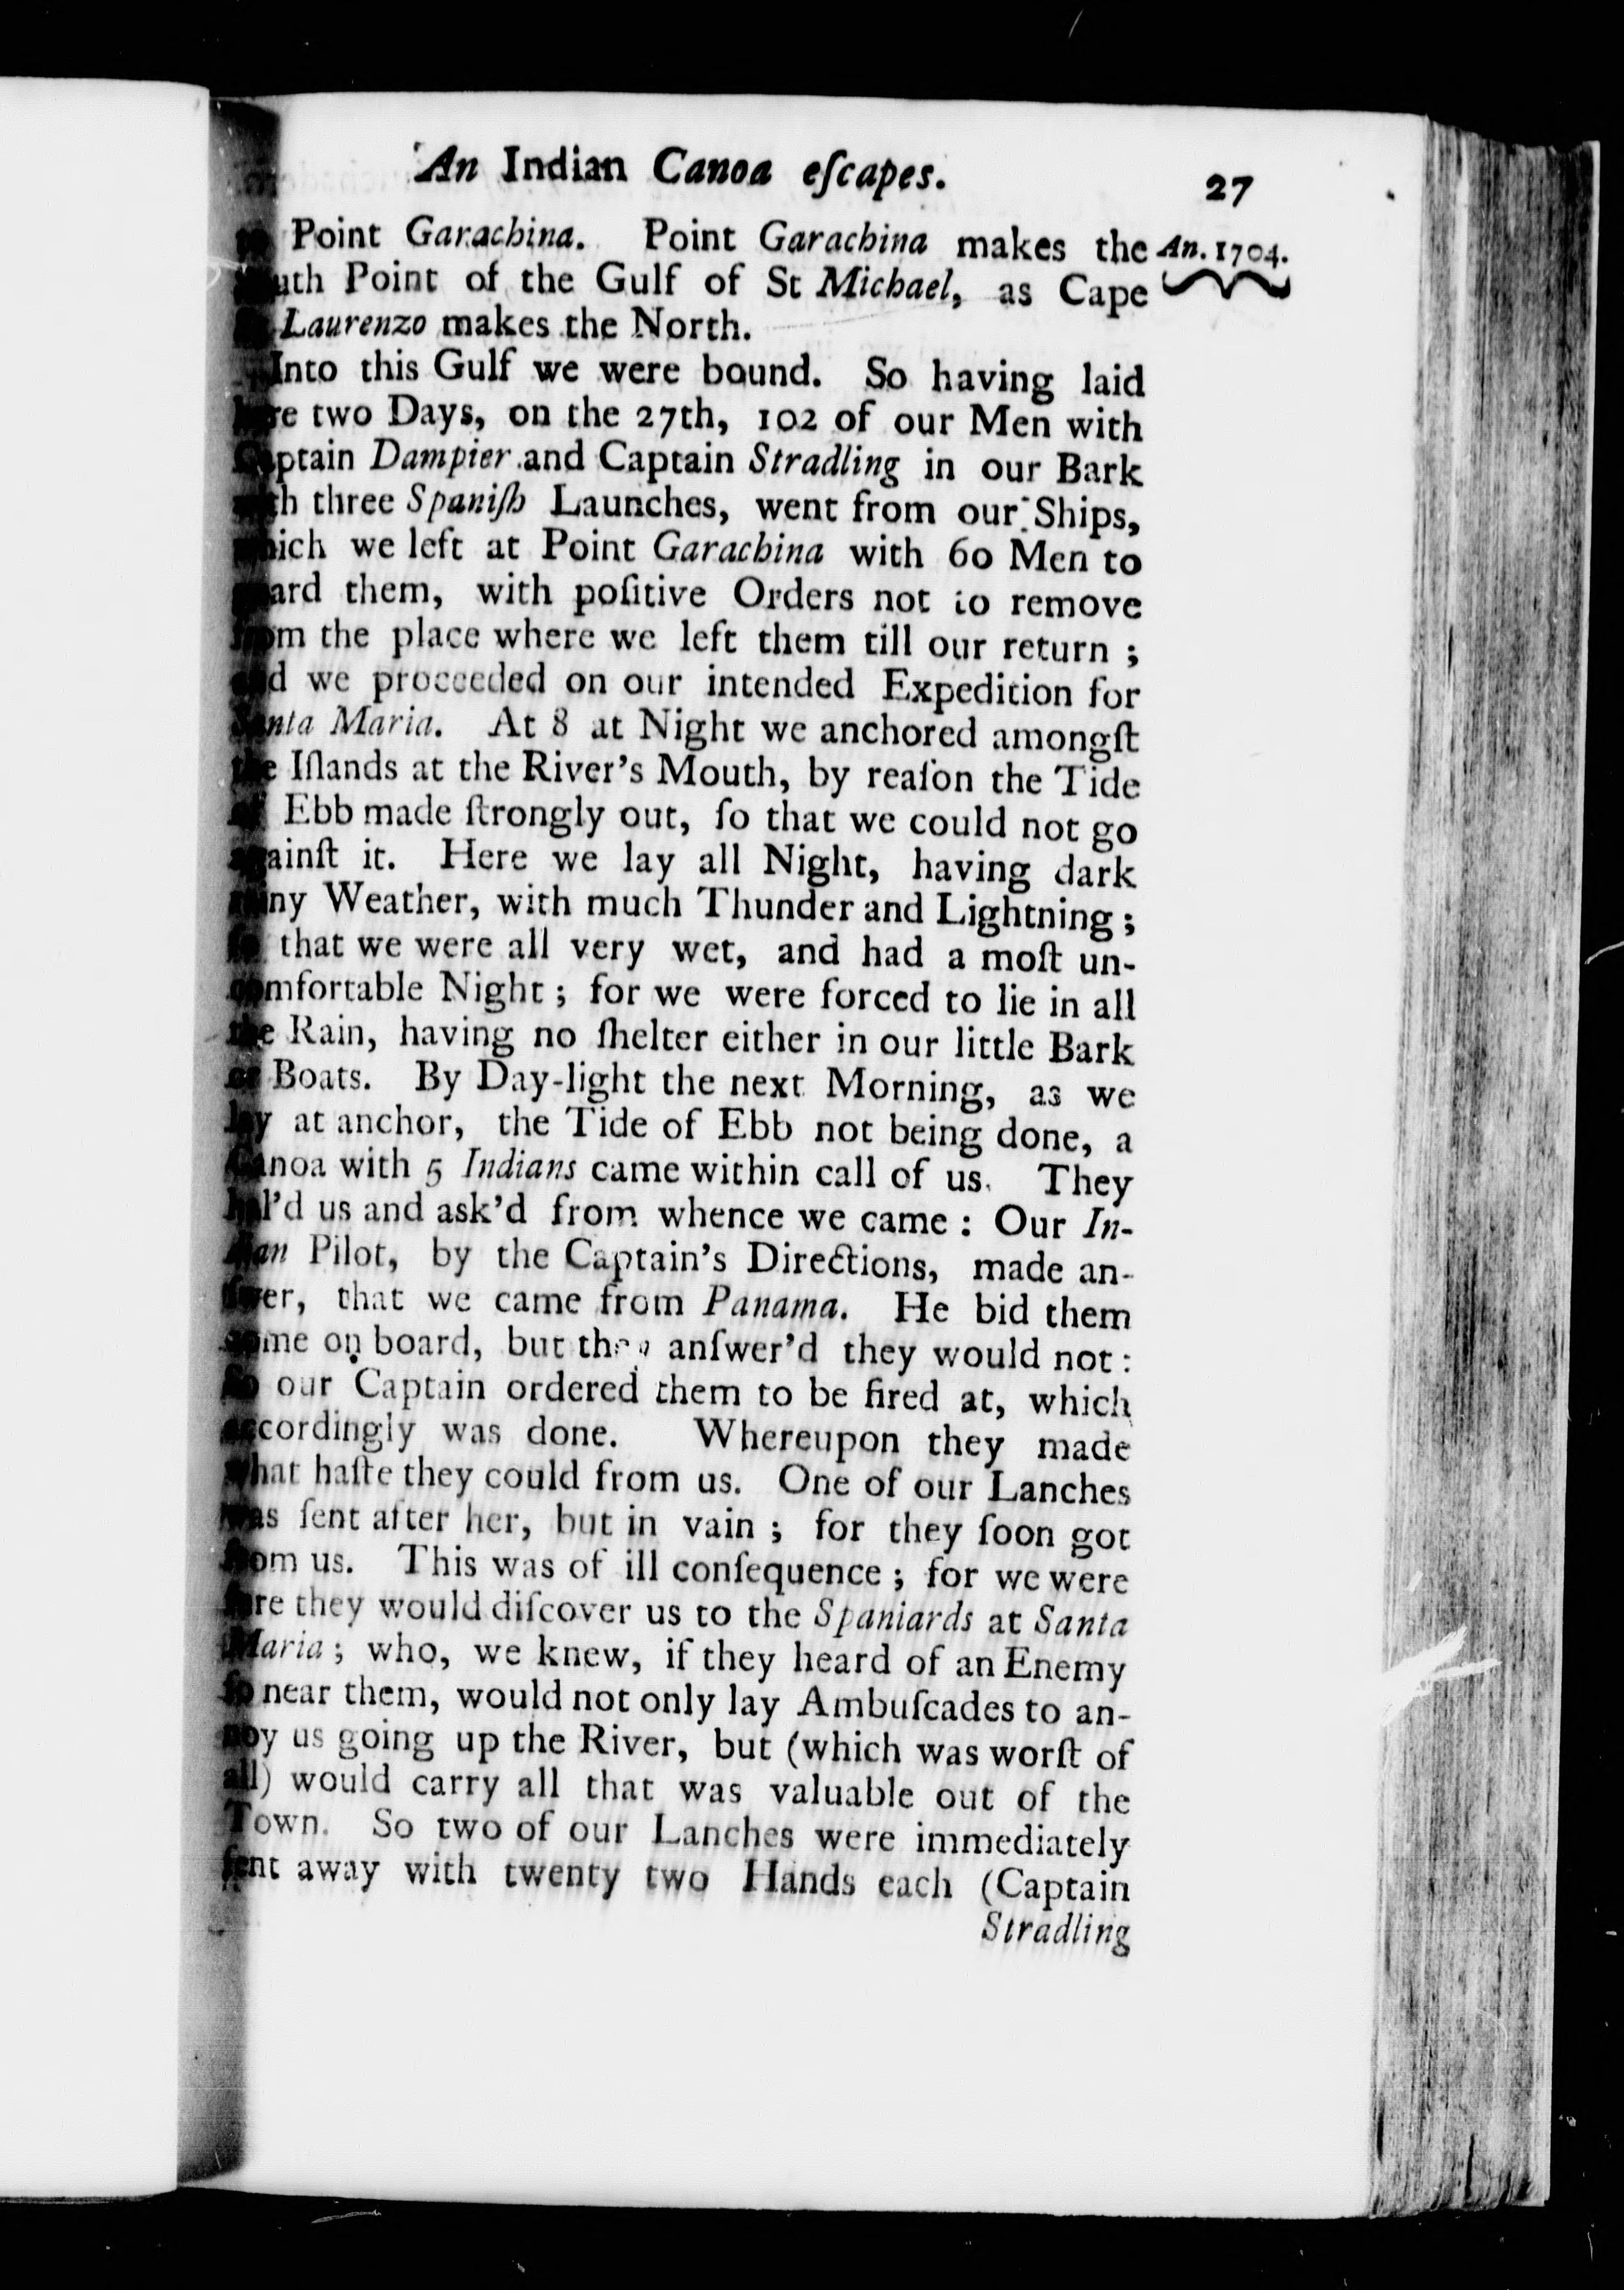 An Indian Canoa eſcapes. 27
to Point Garachina. Point Garachina makes the An. 1704.
South Point of the Gulf of St Michael, as Cape
Laurenzo makes the North.
Into this Gulf we were bound. So having laid
here two Days, on the 27th, 102 of our Men with
Captain Dampier and Captain Stradling in our Bark
with three Spaniſh Launches, went from our Ships,
which we left at Point Garachina with 60 Men to
guard them, with poſitive Orders not to remove
from the place where we left them till our return ;
and we proceeded on our intended Expedition for
Santa Maria. At 8 at Night we anchored amongſt
the Iſlands at the River's Mouth, by reaſon the Tide
of Ebb made ſtrongly out, ſo that we could not go
againſt it. Here we lay all Night, having dark
rainy Weather, with much Thunder and Lightning ;
ſo that we were all very wet, and had a moſt un-
comfortable Night ; for we were forced to lie in all
the Rain, having no ſhelter either in our little Bark
or Boats. By Day-light the next Morning, as we
lay at anchor, the Tide of Ebb not being done, a
Canoa with 5 Indians came within call of us. They
hal'd us and ask'd from whence we came : Our In-
dian Pilot, by the Captain's Directions, made an-
ſwer, that we came from Panama. He bid them
come on board, but they anſwer'd they would not :
So our Captain ordered them to be fired at, which
accordingly was done. Whereupon they made
what haſte they could from us. One of our Lanches
was ſent after her, but in vain ; for they ſoon got
from us. This was of ill conſequence ; for we were
ſure they would diſcover us to the Spaniards at Santa
Maria ; who, we knew, if they heard of an Enemy
ſo near them, would not only lay Ambuſcades to an-
noy us going up the River, but (which was worſt of
all) would carry all that was valuable out of the
Town. So two of our Lanches were immediately
ſent away with twenty two Hands each (Captain
Stradling